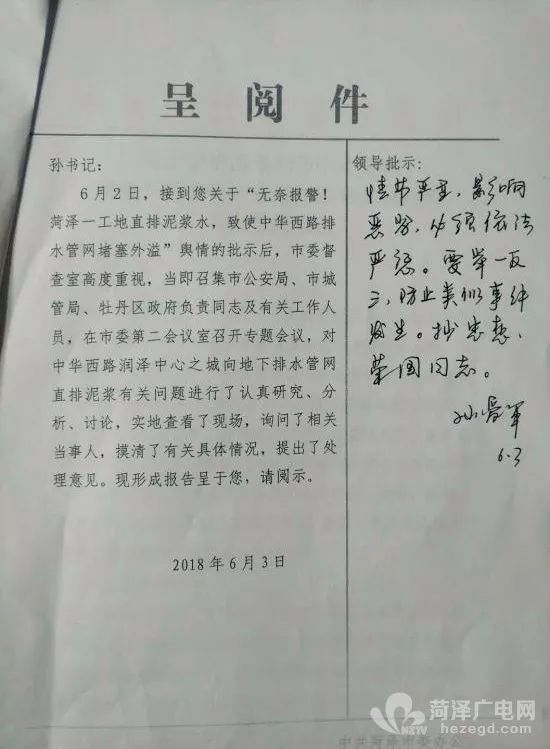 呈阅件
孙书记：
6月2日，接到您关于“无奈报警！
菏泽一工地直排泥浆水，致使中华西路排
水管网堵塞外溢”舆情的批示后，市委督
查室高度重视，当即召集市公安局、市城
管局、牡丹区政府负责同志及有关工作人
员，在市委第二会议室召开专题会议，对
中华西路润泽中心之城向地下排水管网
直排泥浆有关问题进行了认真研究、分
析、讨论，实地查看了现场，询问了相关
当事人，摸清了有关具体情况，提出了处
理意见。现形成报告呈于您，请阅示。
2018年6月3日
领导批示：
情节严重，影响
恶劣，必须依法
严惩。要举一反
三，防止类似事件
发生。抄忠想、
荣国同志。
孙爱军
6.3
菏泽广电网
HZTV
hezegd.com